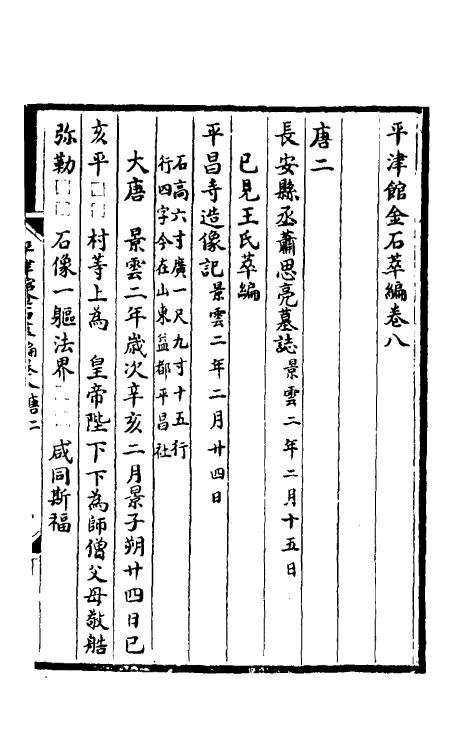 平津館金石萃編卷八
唐二
長安縣丞蕭思亮墓誌景雲二年二月十五日
已見王氏萃編
平昌寺造像記景雲二年二月廿四日
石高六寸廣一尺九寸十五行
行四字今在山東益都平昌社
大唐 景雲二年歲次辛亥二月景子朔廿四日已
亥平□□村等上為 皇帝陛下下為師僧父母敬䑽
弥勒□□石像一軀法界□□咸同斯福
平津館金石萃編卷八 唐二